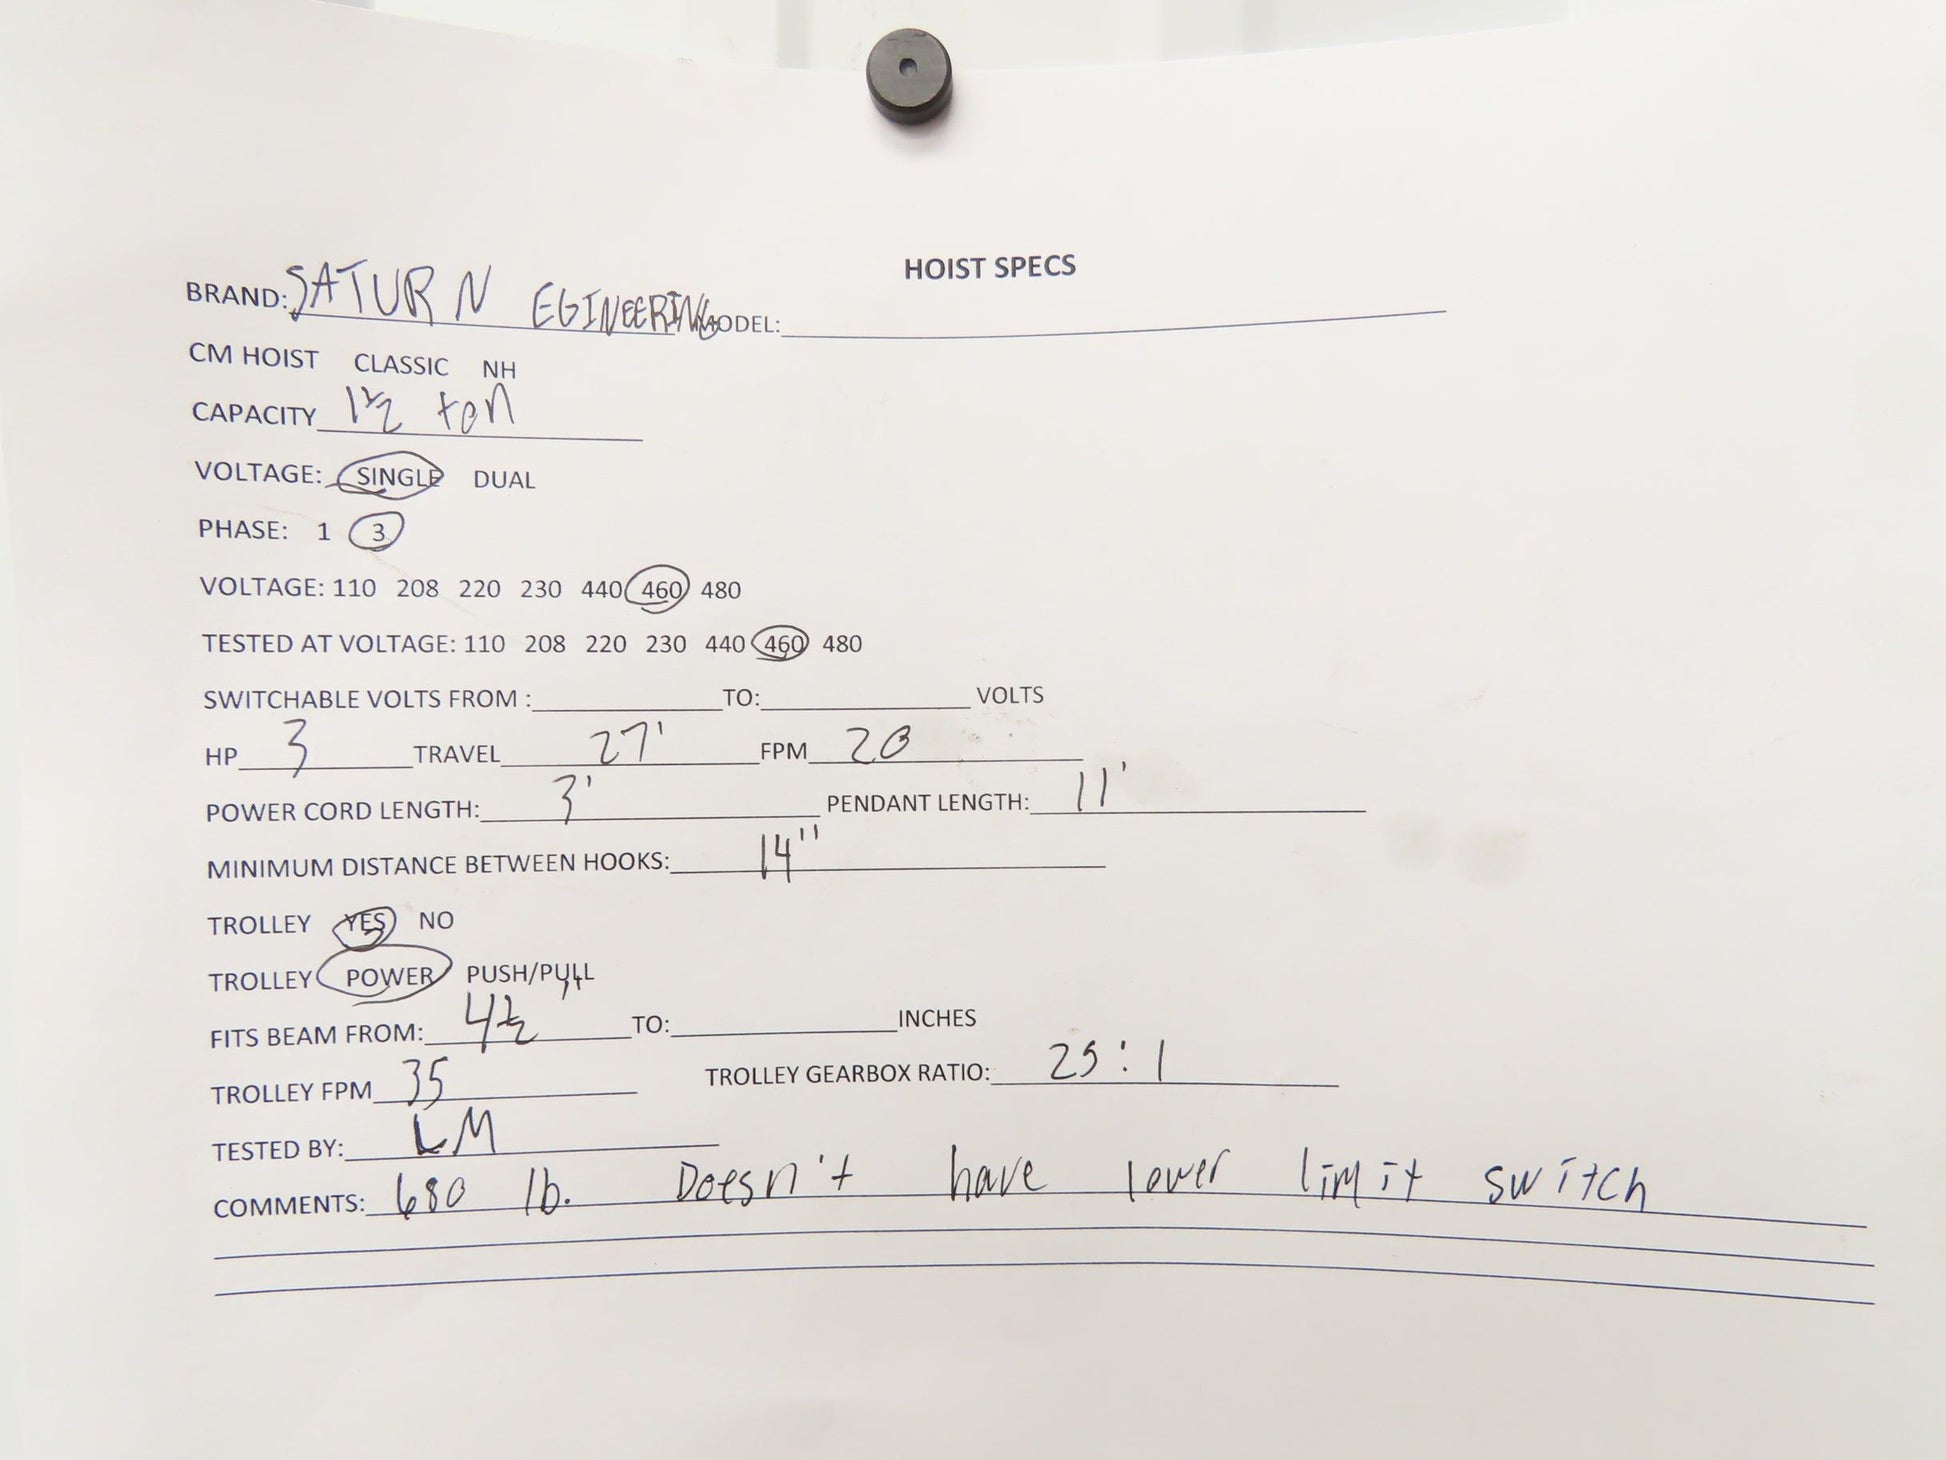 HOIST SPECS
BRAND: SATURN EGINEERING MODEL:
CM HOIST CLASSIC NH
CAPACITY 1 1/2 ton
VOLTAGE: SINGLE DUAL
PHASE: 1 3
VOLTAGE: 110 208 220 230 440 460 480
TESTED AT VOLTAGE: 110 208 220 230 440 460 480
SWITCHABLE VOLTS FROM : TO: VOLTS
HP 3 TRAVEL 27' FPM 20
POWER CORD LENGTH: 3' PENDANT LENGTH: 11'
MINIMUM DISTANCE BETWEEN HOOKS: 14"
TROLLEY YES NO
TROLLEY POWER PUSH/PULL
FITS BEAM FROM: 4 1/2 TO: INCHES
TROLLEY FPM 35 TROLLEY GEARBOX RATIO: 25:1
TESTED BY: LM
COMMENTS: 680 lb. Doesn't have lower limit switch